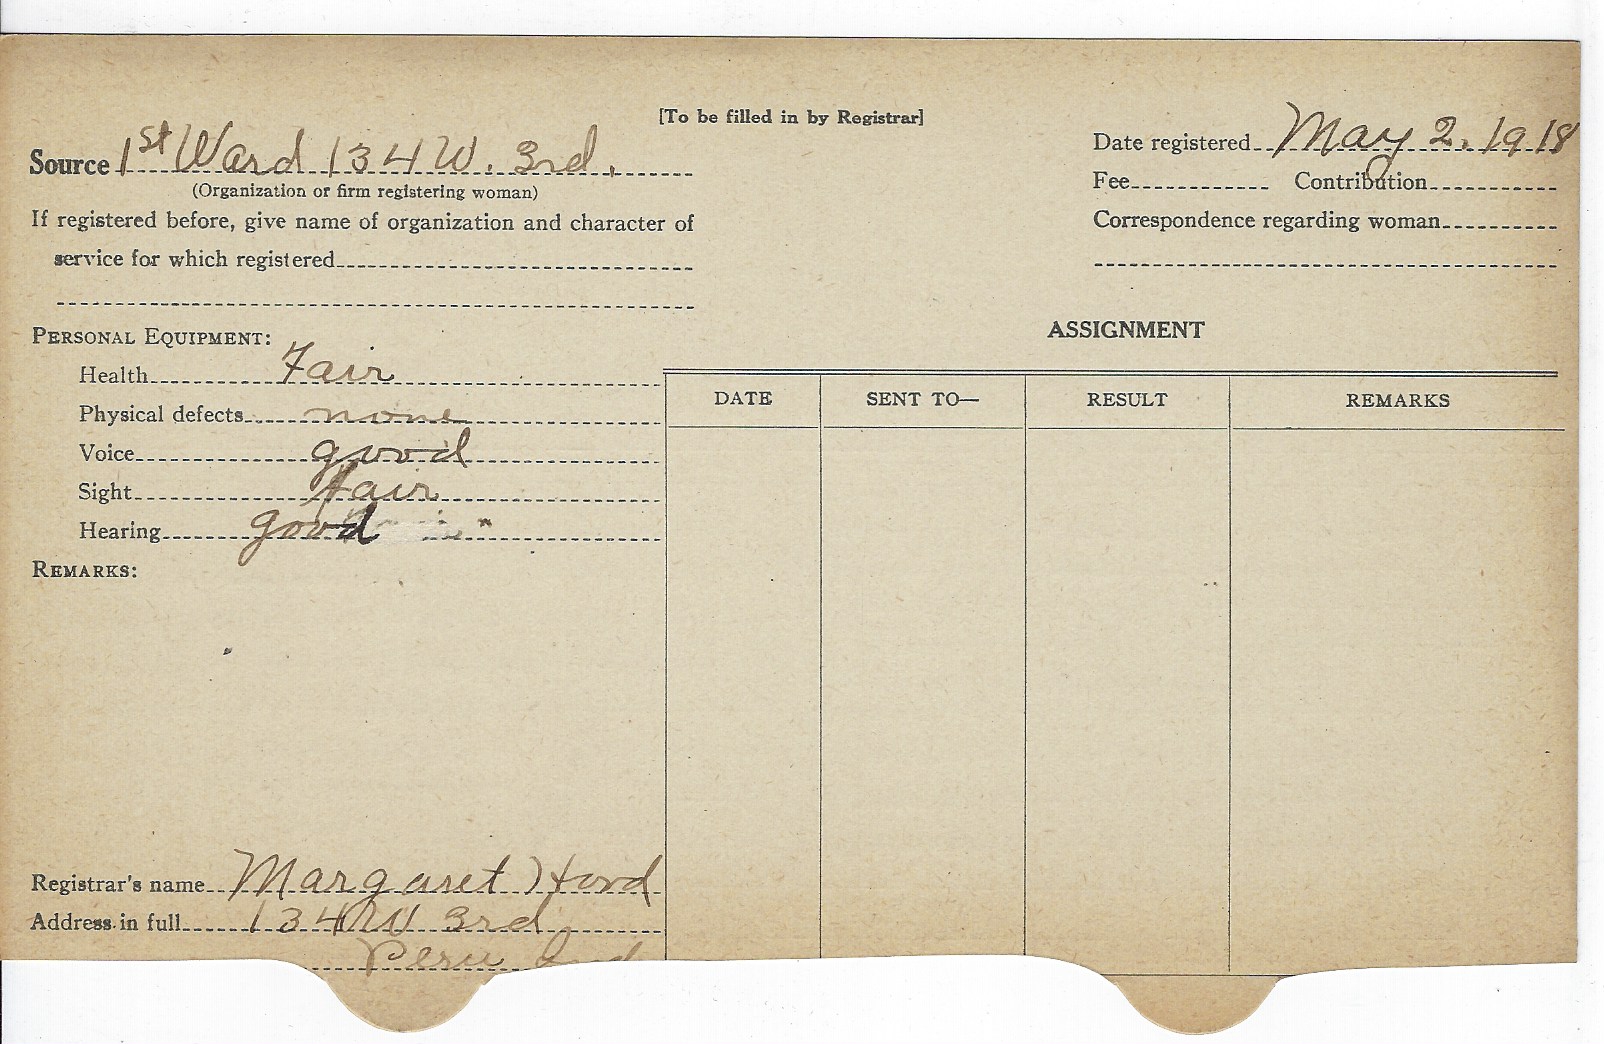 [To be filled in by Registrar]
Source 1st Ward 134 W. 3rd.
(Organization or firm registering woman)
If registered before, give name of organization and character of
service for which registered
Date registered May 2. 1918
Fee Contribution
Correspondence regarding woman
PERSONAL EQUIPMENT:
Health Fair
Physical defects none
Voice good
Sight fair
Hearing good
REMARKS:
ASSIGNMENT
DATE SENT TO— RESULT REMARKS
Registrar's name Margaret Hood
Address in full 134 W 3rd
Peru Ind